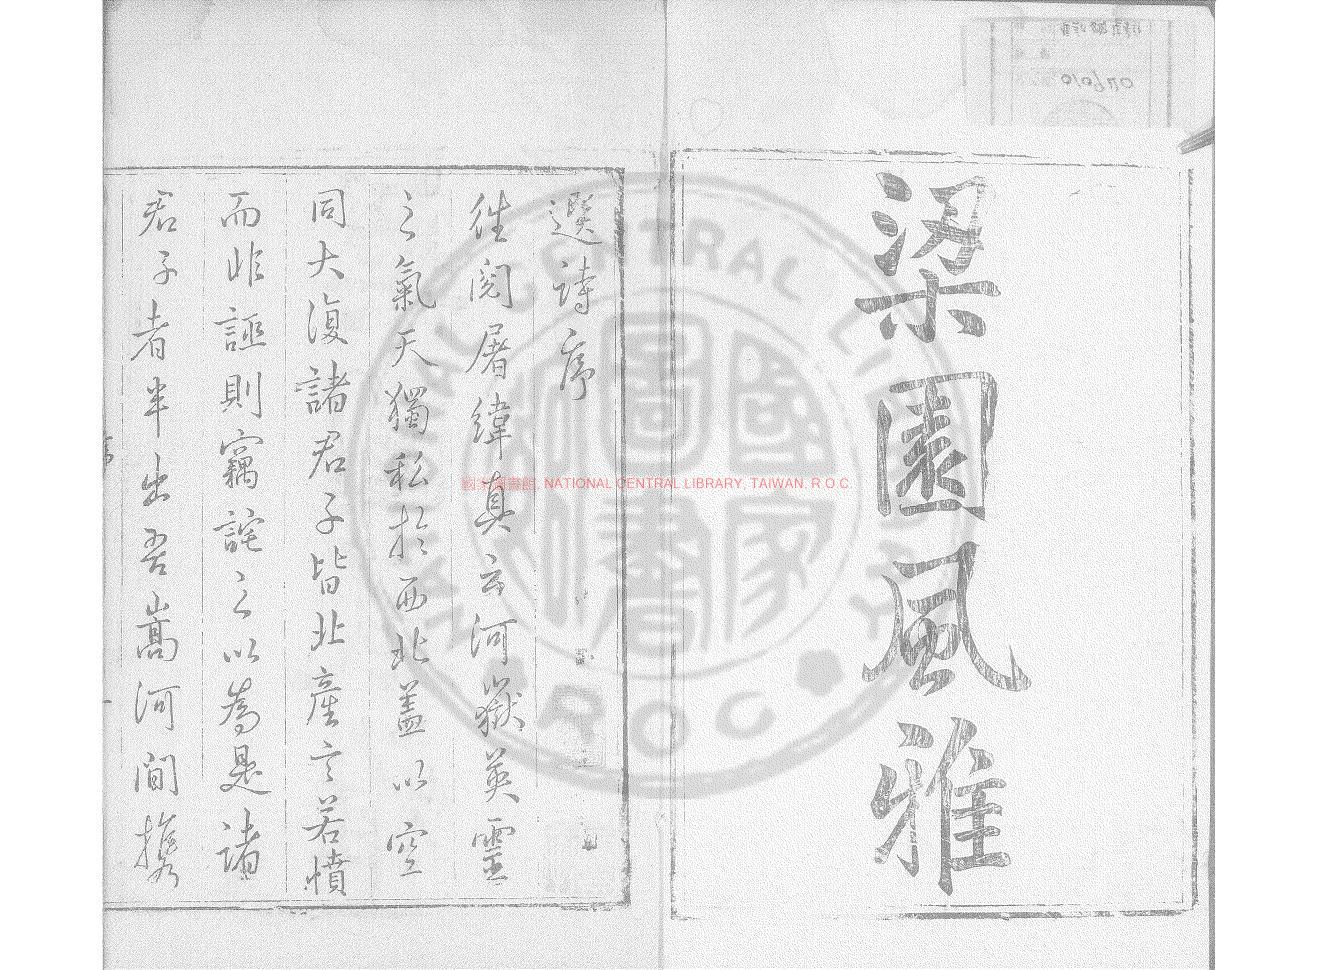 梁園風雅
選詩序
往閱屠緯真云河嶽英靈
之氣天獨私於西北蓋以空
同大復諸君子皆北產言若憤
而非誣則竊詫之以為是諸
君子者半出吾嵩河間攜
國家圖書館, NATIONAL CENTRAL LIBRARY, TAIWAN, R O C.
NATIONAL CENTRAL LIBRARY
ROC
國家圖書